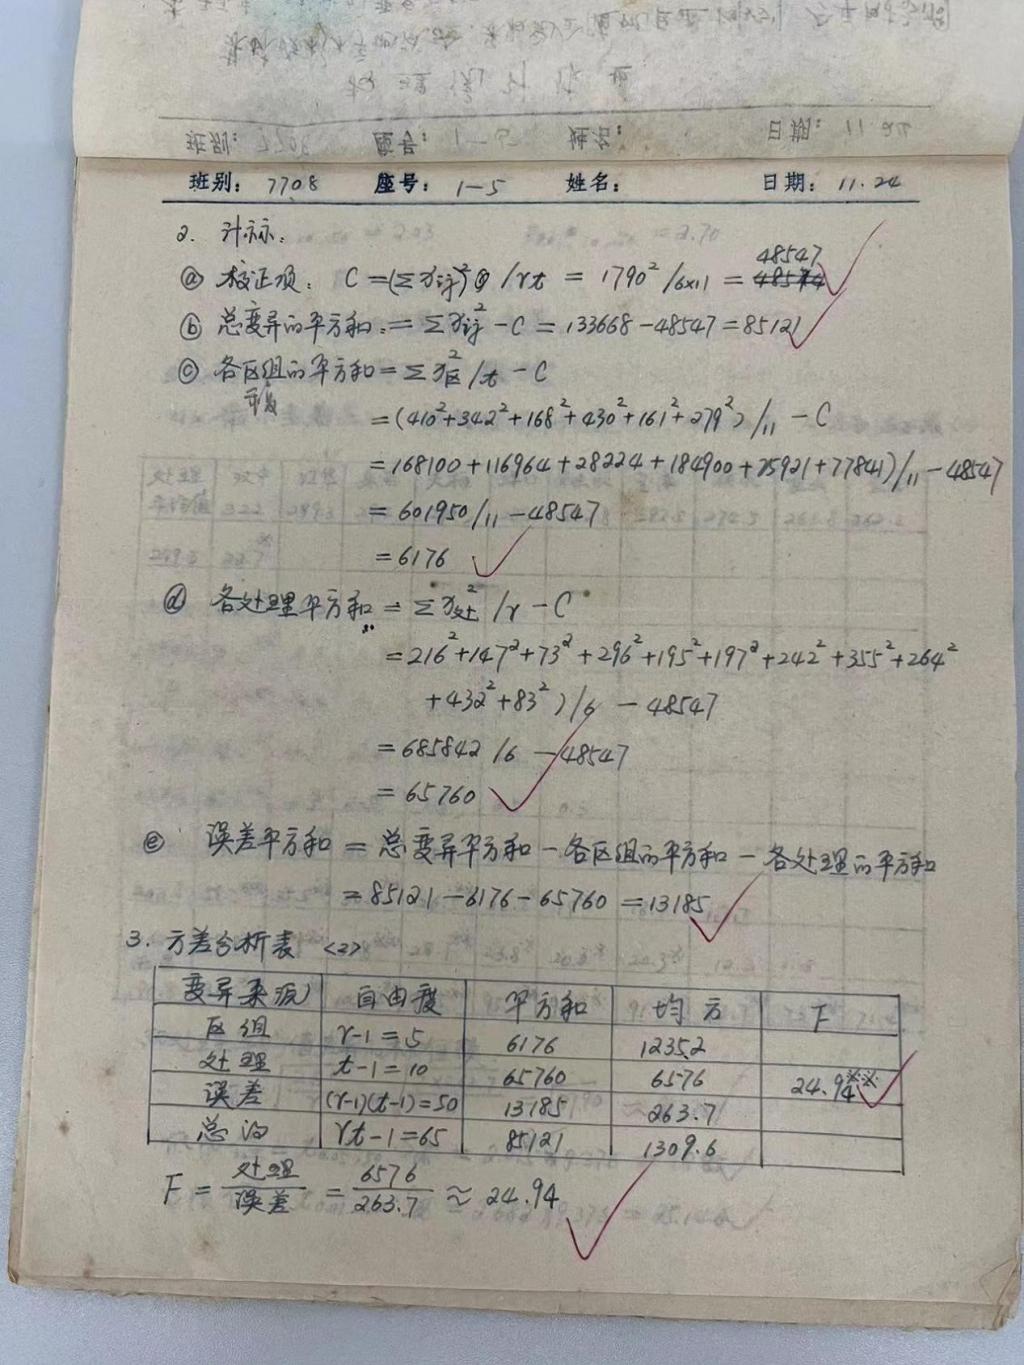 班别: 7708 座号: 1-5 姓名: 日期: 11.24
2. 计标:
ⓐ 校正项: C =(Σxij)² /rt = 1790²/6x11 = 48547
ⓑ 总变异的平方和: = Σxij² - C = 133668 - 48547 = 85121
ⓒ 各区组的平方和 = Σx区²/t - C
= (410²+342²+168²+430²+161²+279²)/11 - C
= 168100+116964+28224+184900+25921+77841)/11 - 48547
= 601950/11 - 48547
= 6176
ⓓ 各处理平方和 = Σx处²/r - C
= 216²+147²+73²+296²+195²+197²+242²+355²+264²
+432²+83²)/6 - 48547
= 685842/6 - 48547
= 65760
ⓔ 误差平方和 = 总变异平方和 - 各区组的平方和 - 各处理的平方和
= 85121 - 6176 - 65760 = 13185
3. 方差分析表 <2>
变异来源 自由度 平方和 均方 F
区组 r-1=5 6176 1235.2
处理 t-1=10 65760 6576 24.94※※
误差 (r-1)(t-1)=50 13185 263.7
总的 rt-1=65 85121 1309.6
F = 处理/误差 = 6576/263.7 ≈ 24.94